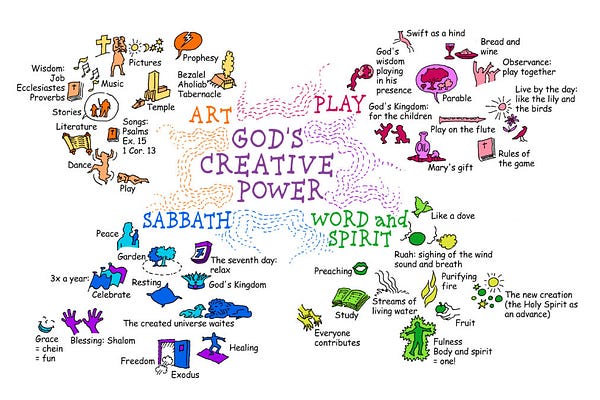 GOD'S
CREATIVE
POWER
ART
Pictures
Prophesy
Wisdom:
Job
Ecclesiastes
Proverbs
Music
Bezalel
Aholiab
Tabernacle
Temple
Stories
Literature
Songs:
Psalms
Ex. 15
1 Cor. 13
Dance
Play
PLAY
Swift as a hind
Bread and
wine
God's
wisdom
playing
in His
presence
Observance:
play together
Parable
Live by the day:
like the lily and
the birds
God's Kingdom:
for the children
Play on the flute
Rules of
the game
Mary's gift
SABBATH
Peace
Garden
The seventh day:
relax
3x a year:
Celebrate
Resting
God's Kingdom
The created universe waites
Grace
= chein
= fun
Blessing: Shalom
Healing
Freedom
Exodus
WORD and
SPIRIT
Like a dove
Ruah: sighing of the wind
sound and breath
Preaching
Purifying
fire
Study
Streams of
living water
The new creation
(the Holy Spirit as
an advance)
Fruit
Everyone
contributes
Fulness
Body and spirit
= one!